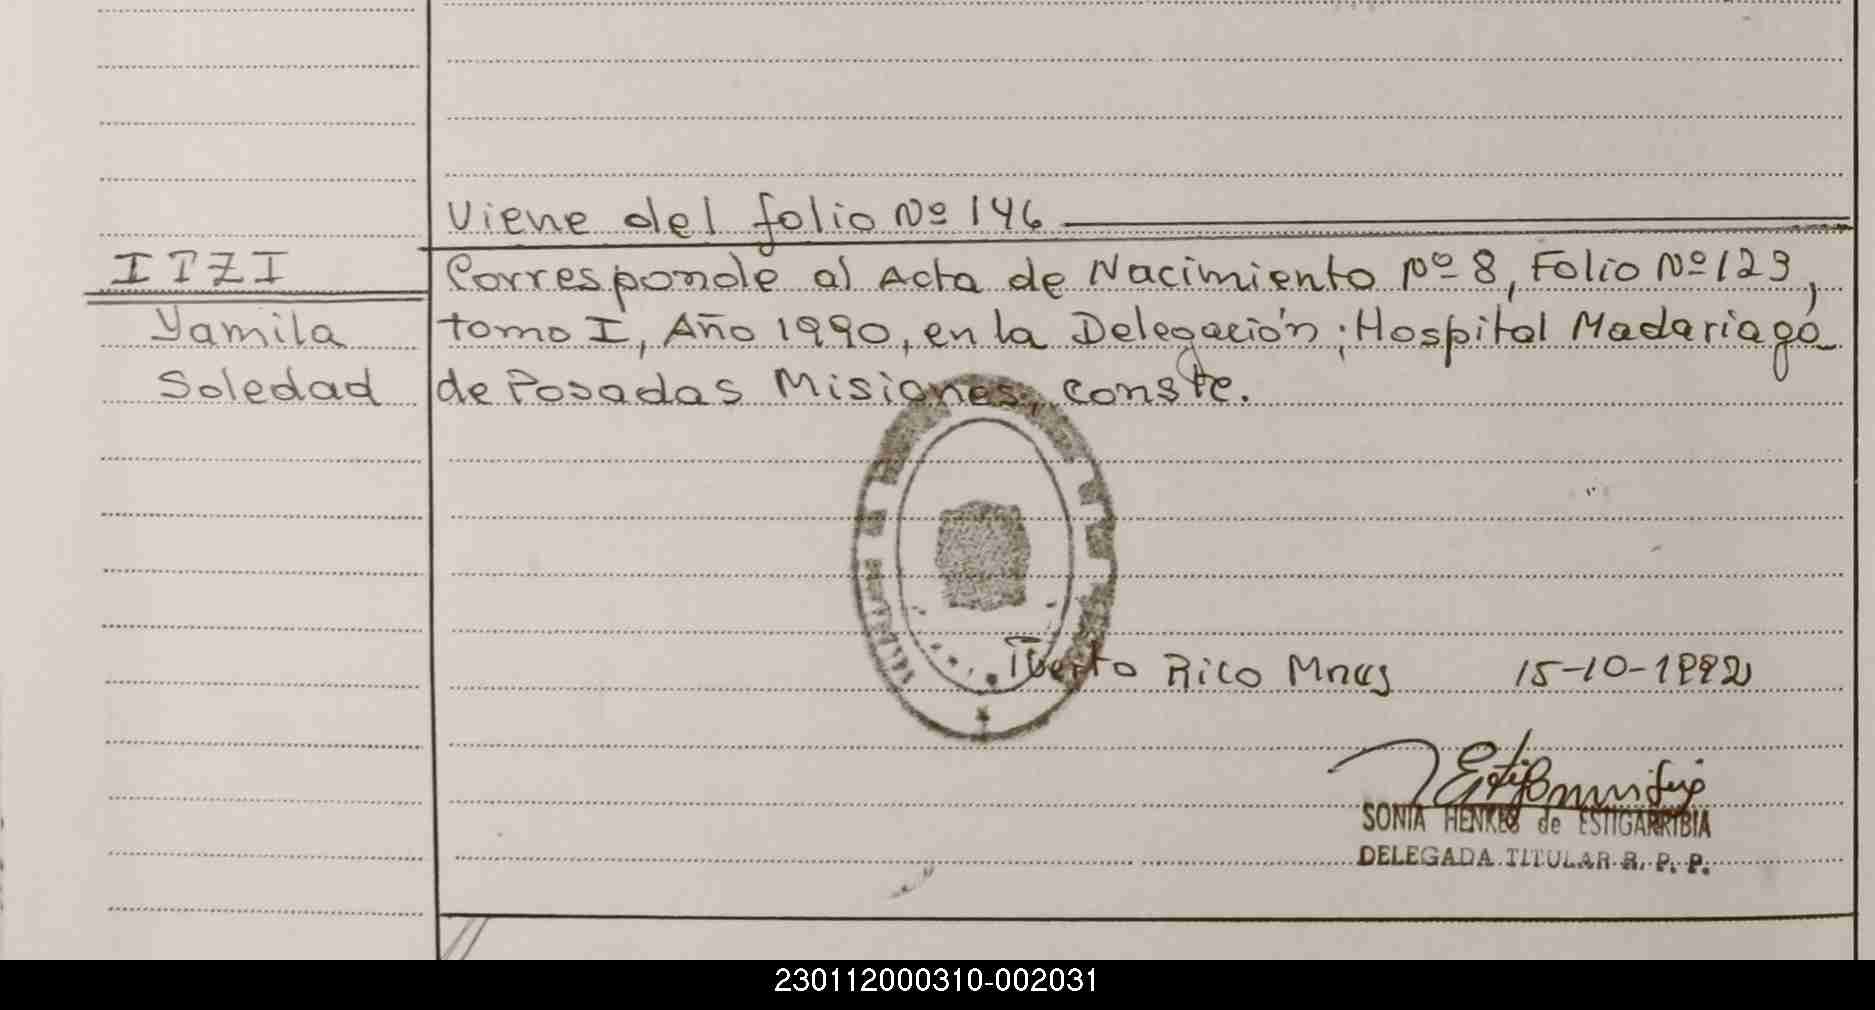 Viene del folio Nº 146
ITZI
Corresponde al Acta de Nacimiento Nº 8, Folio Nº 123,
Yamila
tomo I, Año 1990, en la Delegación; Hospital Madariaga
Soledad
de Posadas Misiones, conste.
Puerto Rico Mnes 15-10-1992
SONIA HENKES de ESTIGARRIBIA
DELEGADA TITULAR R. P. P.
230112000310-002031